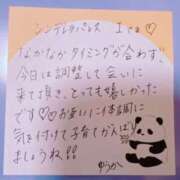 シンデレラパレス Iさま♡
なかなかタイミングが合わず、
今日は調整して会いに
来て頂き、とっても嬉しかった
です♡♡お互いに体調に
気を付けて子育てがんばり
ましょうね!!
ゆうか